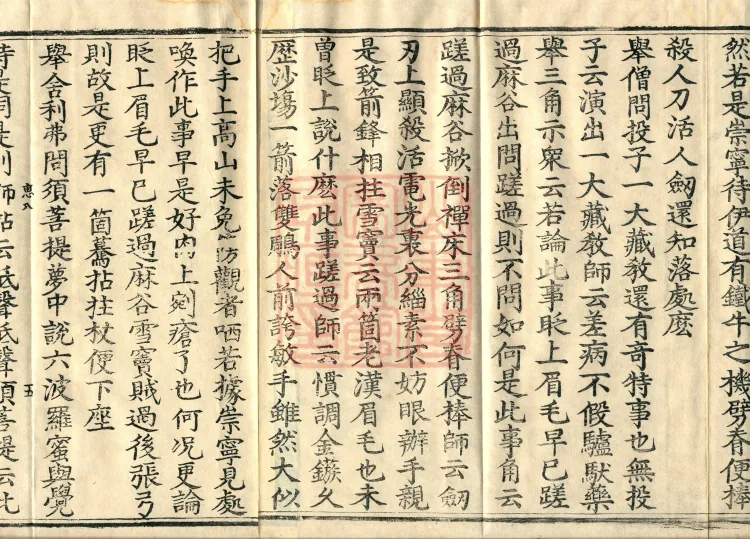 然若是崇寧待伊道有鐵牛之機劈脊便棒
殺人刀活人劔還知落處麽
舉僧問投子一大藏教還有奇特事也無投
子云演出一大藏教師云差病不假驢馱藥
舉三角示衆云若論此事眨上眉毛早已蹉
過麻谷出問蹉過則不問如何是此事角云
蹉過麻谷掀倒禪床三角劈脊便棒師云劔
刃上顯殺活電光裏分緇素不妨眼辦手親
是致箭鋒相拄雪竇云兩箇老漢眉毛也未
曾眨上說什麽此事蹉過師云慣調金鏃久
歷沙塲一箭落雙鵰人前誇敏手雖然大似
把手上高山未免傍觀者哂若據崇寧見處
喚作此事早是好肉上剜瘡了也何况更論
眨上眉毛早已蹉過麻谷雪竇賊過後張弓
則故是更有一箇驀拈拄杖便下座
舉舍利弗問須菩提夢中說六波羅蜜與覺
時是同是別師拈云低聲低聲須菩提云此
五